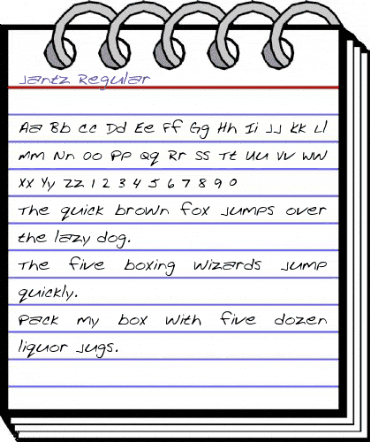 Jantz Regular
Aa Bb Cc Dd Ee Ff Gg Hh Ii JJ KK Ll
Mm Nn Oo Pp Qq Rr Ss Tt Uu Vv WW
Xx Yy Zz 1 2 3 4 5 6 7 8 9 0
The quick brown fox jumps over
the lazy dog.
The five boxing wizards jump
quickly.
Pack my box with five dozen
liquor jugs.